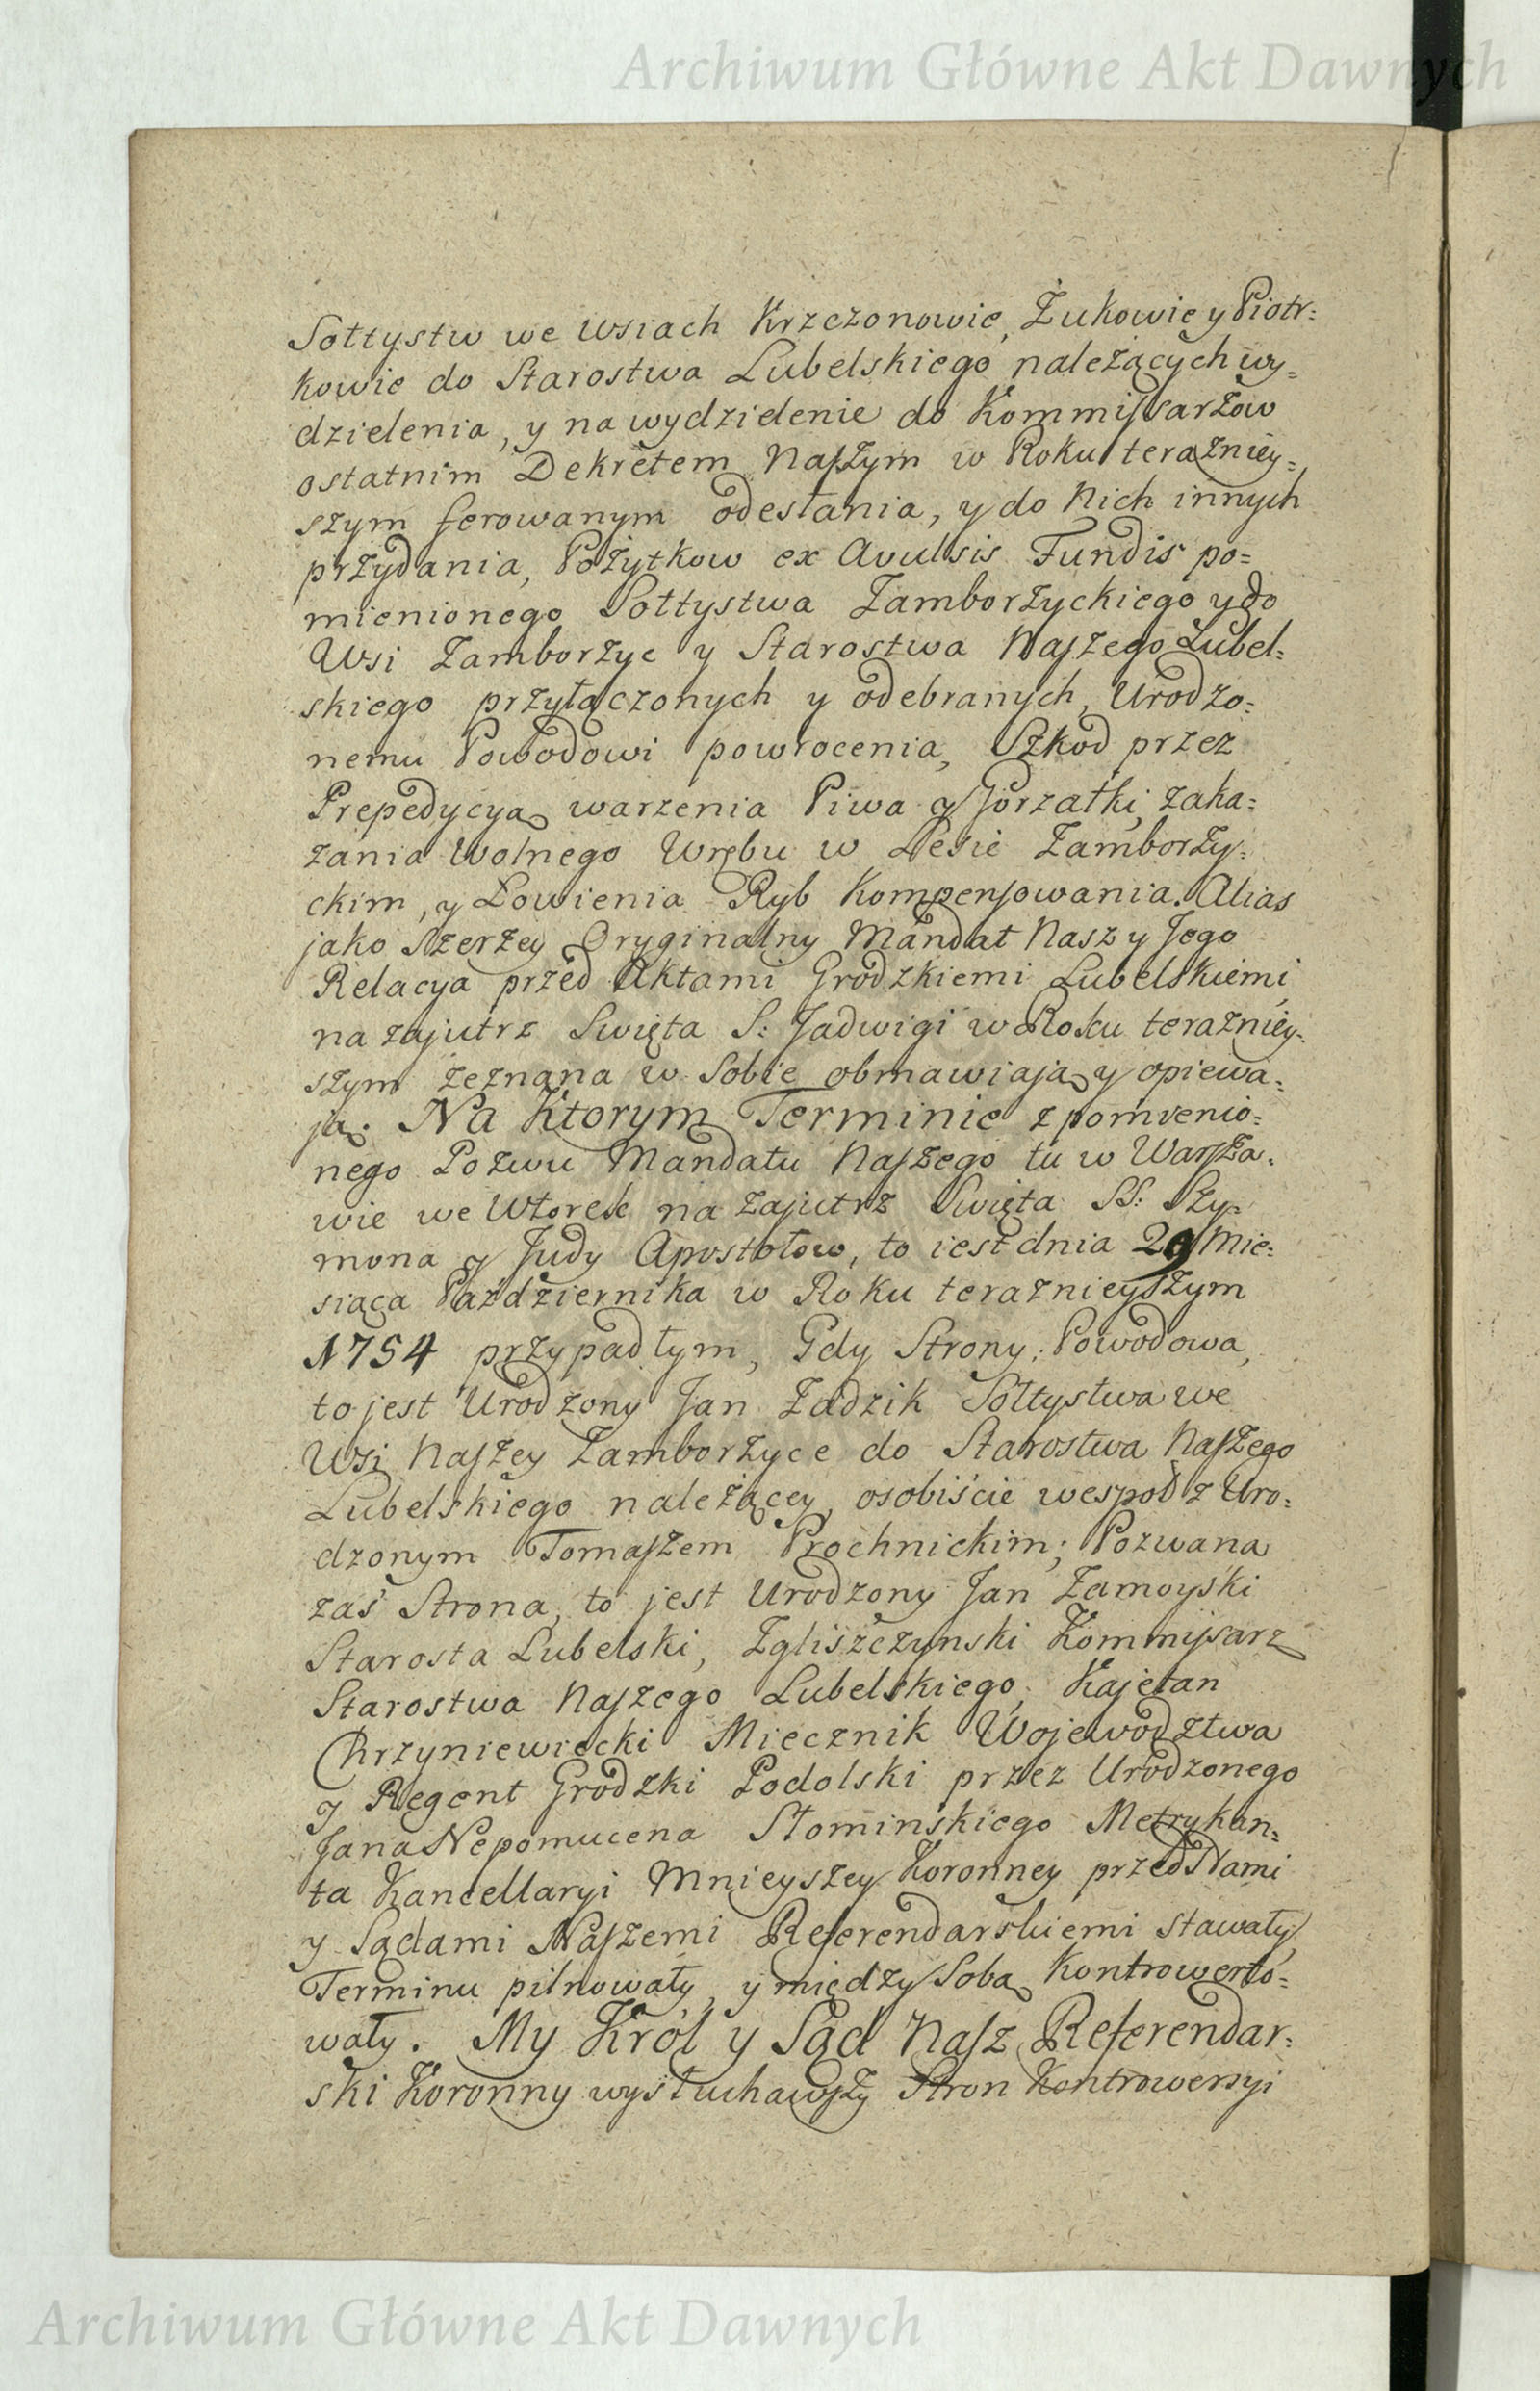 Archiwum Główne Akt Dawnych
Sołtystw we Wsiach Krzczonowie, Żukowie y Piotr=
kowie do Starostwa Lubelskiego należących wy=
dzielenia, y na wydzielenie do Kommissarzow
ostatnim Dekretem Naszym w Roku terazniey=
szym ferowanym odesłania, y do Nich innych
przydania, Pożytkow ex Avulsis Fundis po=
mienionego Sołtystwa Zamborzyckiego y do
Wsi Zamborzyc y Starostwa Naszego Lubel=
skiego przyłączonych y odebranych, Urodzo=
nemu Powodowi powrocenia, Szkod przez
Prepedycyą warzenia Piwa y Gorzałki, zaka=
zania Wolnego Wrębu w Lesie Zamborzy=
ckim, y Łowienia Ryb Kompensowania. Alias
jako Szerzey Oryginalny Mandat Nasz y Jego
Relacya przed Aktami Grodzkiemi Lubelskiemi
na zajutrz Swięta S: Jadwigi w Roku terazniey=
szym zeznana w Sobie obmawiają y opiewa=
ją. Na Ktorym Terminie z pomienio=
nego Pozwu Mandatu Naszego tu w Warsza=
wie we Wtorek na zajutrz Swięta SS: Szy=
mona y Judy Apostołow, to iest dnia 29 Mie=
siąca Października w Roku teraznieyszym
1754 przypadłym, Gdy Strony: Powodowa,
to jest Urodzony Jan Zadzik Sołtystwa we
Wsi Naszey Zamborzyce do Starostwa Naszego
Lubelskiego należącey, osobiście wespoł z Uro=
dzonym Tomaszem Prochnickim; Pozwana
zaś Strona, to jest Urodzony Jan Zamoyski
Starosta Lubelski, Zgliszczynski Kommissarz
Starostwa Naszego Lubelskiego, Kajetan
Chrzyniewiecki Miecznik Wojewodztwa
y Regent Grodzki Podolski przez Urodzonego
Jana Nepomucena Słominskiego Metrykan=
ta Kancellaryi Mnieyszey Koronney przed Nami
y Sądami Naszemi Referendarskiemi stawały,
Terminu pilnowały, y między Sobą Kontrowerto=
wały. My Król y Sąd Nasz Referendar=
ski Koronny wysłuchawszy Stron Kontrowersyi
Archiwum Główne Akt Dawnych